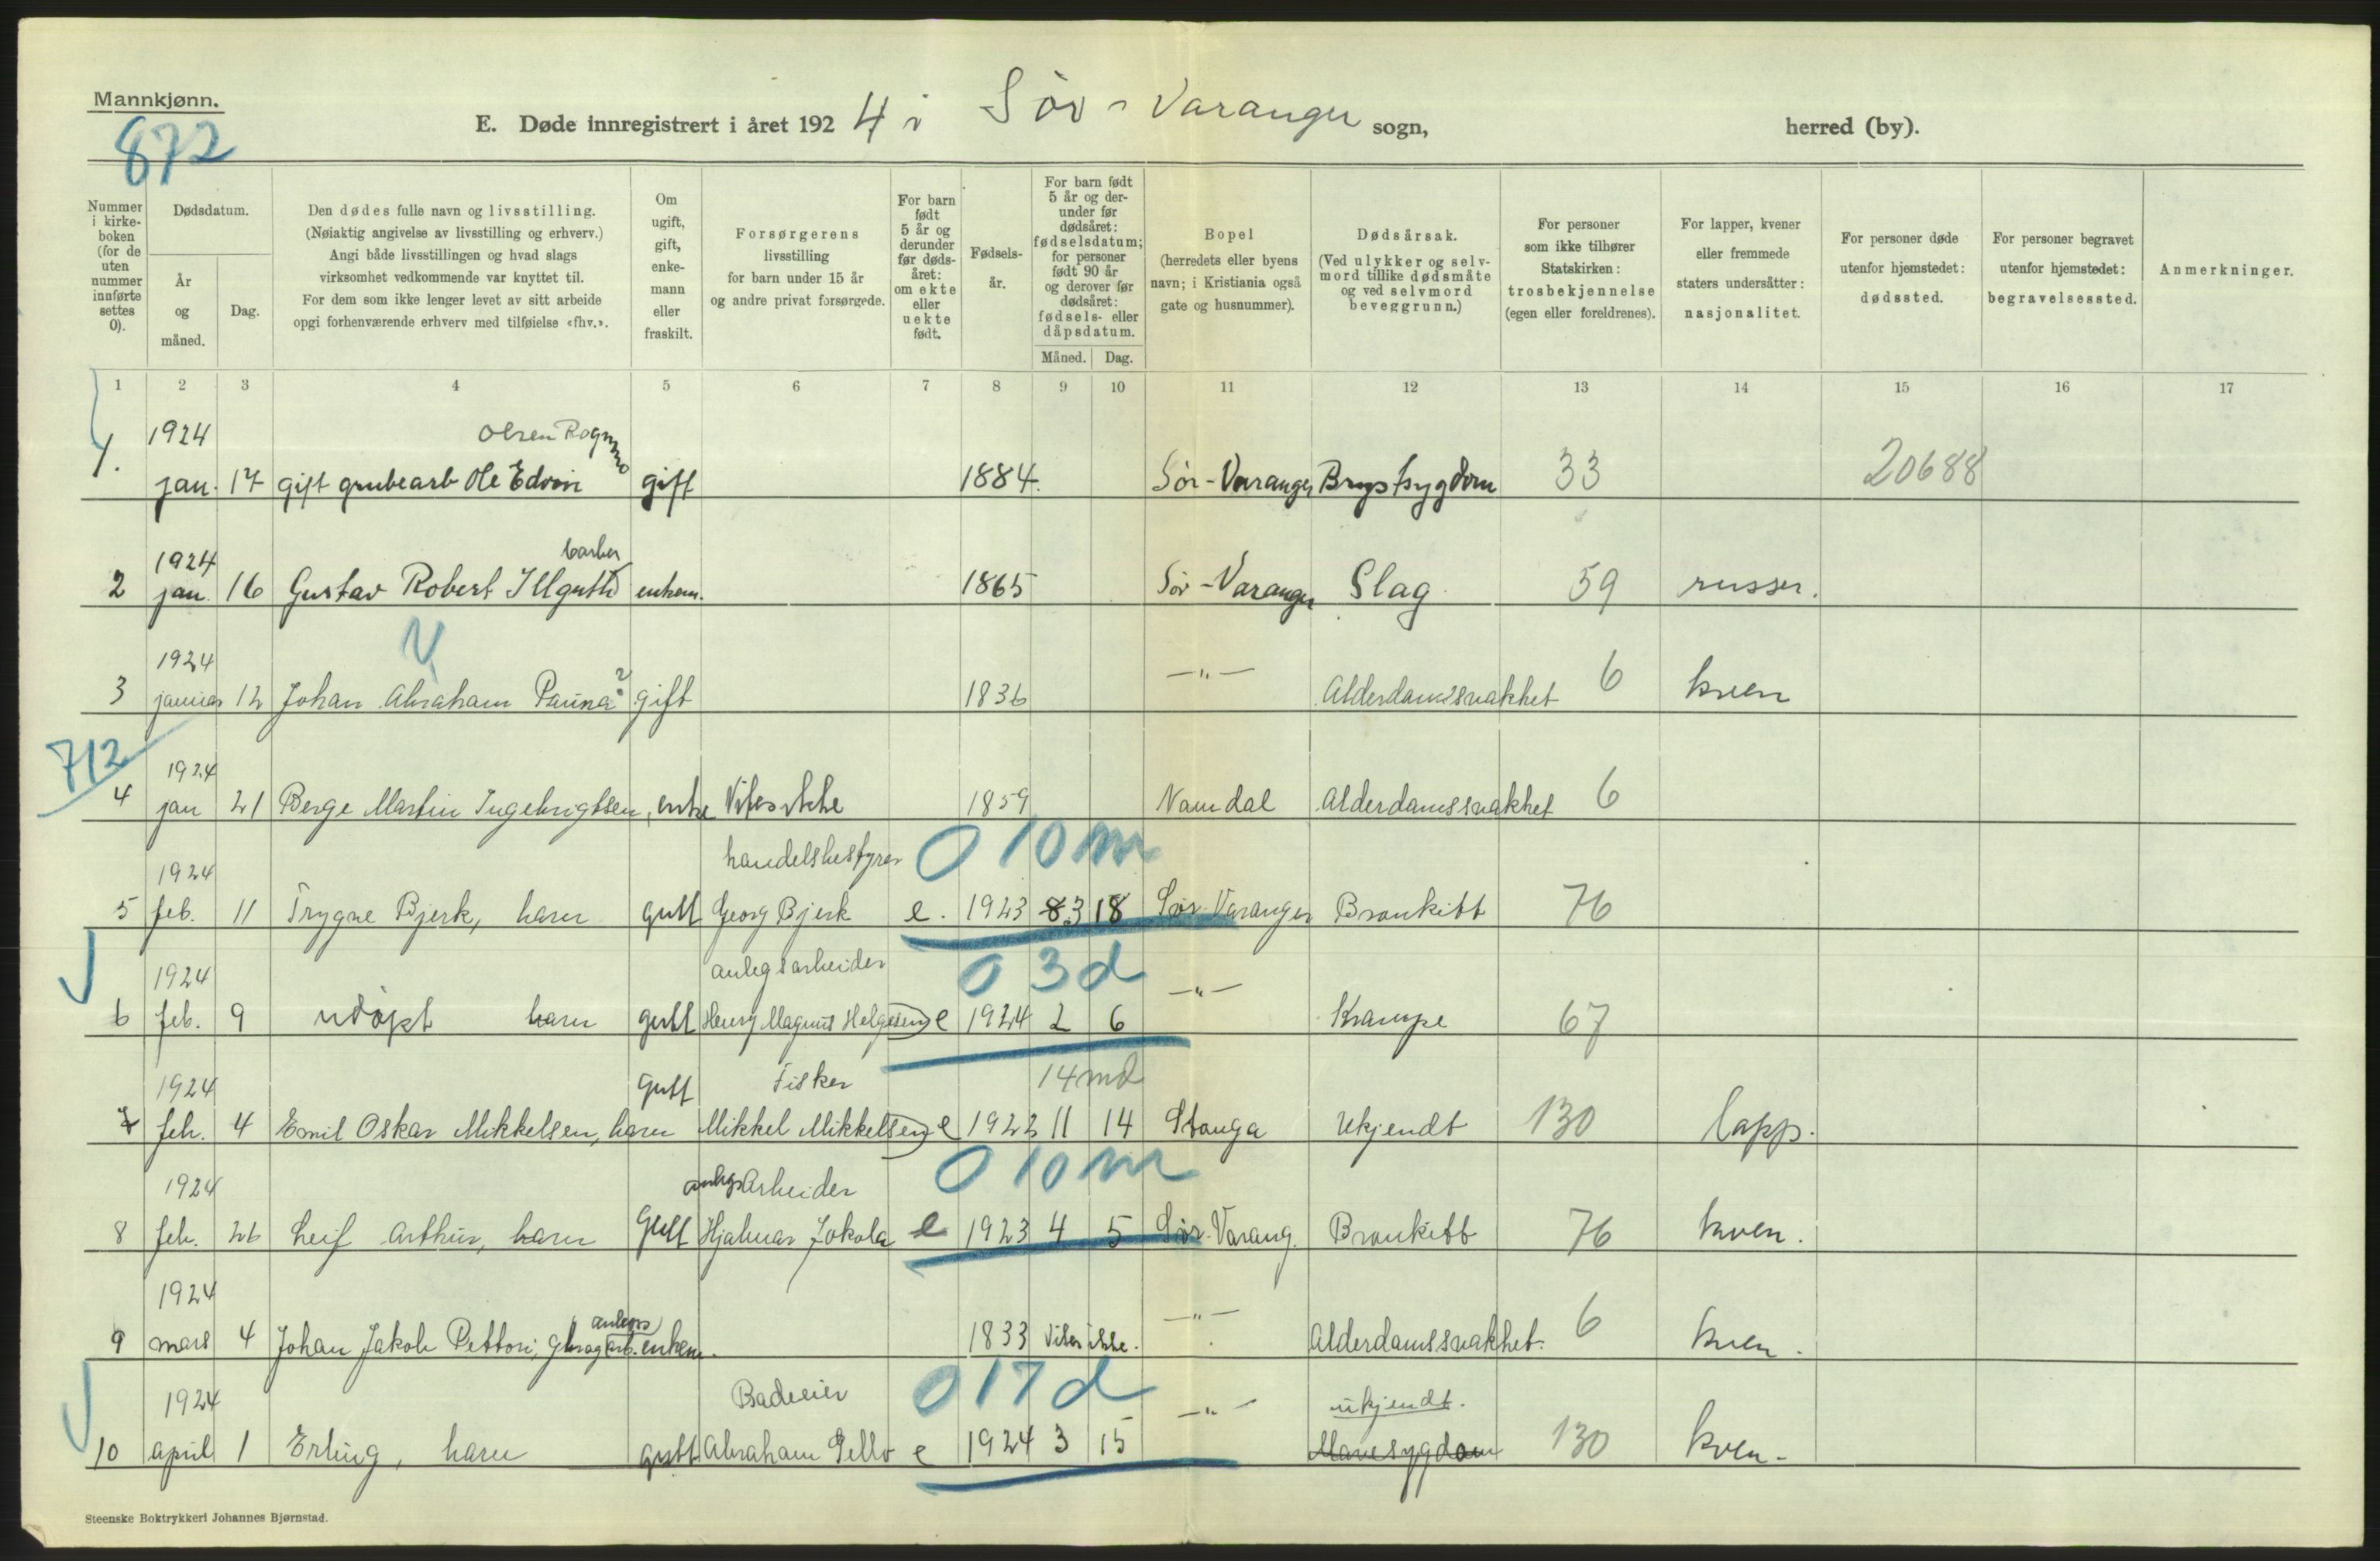 Mannkjønn.
872
E. Døde innregistrert i året 1924 i Sør-Varanger sogn, herred (by).
Nummer i kirkeboken (for de uten nummer innførte settes 0).
Dødsdatum.
År og måned.
Dag.
Den dødes fulle navn og livsstilling.
(Nøiaktig angivelse av livsstilling og erhverv.)
Angi både livsstillingen og hvad slags
virksomhet vedkommende var knyttet til.
For dem som ikke lenger levet av sitt arbeide
opgi forhenværende erhverv med tilføielse «fhv.».
Om ugift, gift, enkemann eller fraskilt.
Forsørgerens livsstilling
for barn under 15 år
og andre privat forsørgede.
For barn født 5 år og derunder før dødsåret: om ekte eller uekte født.
Fødselsår.
For barn født 5 år og derunder før dødsåret: fødselsdatum; for personer født 90 år og derover før dødsåret: fødsels- eller dåpsdatum.
Måned. Dag.
Bopel
(herredets eller byens
navn; i Kristiania også
gate og husnummer).
Dødsårsak.
(Ved ulykker og selvmord tillike dødsmåte og ved selvmord beveggrunn.)
For personer som ikke tilhører Statskirken: trosbekjennelse (egen eller foreldrenes).
For lapper, kvener eller fremmede staters undersåtter: nasjonalitet.
For personer døde utenfor hjemstedet: dødssted.
For personer begravet utenfor hjemstedet: begravelsessted.
Anmerkninger.
1 2 3 4 5 6 7 8 9 10 11 12 13 14 15 16 17
1924 Olsen Rognmo
1. jan. 17 gift grubearb Ole Edvin gift 1884. Sør-Varanger Brystsygdom 33 20688
1924 barber
2 jan. 16 Gustav Robert Illguth enkem. 1865 Sør-Varanger Slag 59 russer.
1924
3 januar 12 Johan Abraham Pauna? gift 1836 —"— Alderdomssvakhet 6 kven
712
1924
4 jan 21 Berge Martin Ingebrigtsen, enke Vites ikke 1859 Namdal Alderdomssvakhet 6
1924 handelsbestyrer 0 10 m
5 feb. 11 Trygve Bjerk, barn gutt Georg Bjerk e. 1923 8 3 18 Sør-Varanger Bronkitt 76
1924 anlegsarbeider 0 3 d
6 feb. 9 udøpt barn gutt Henry Magnus Helgesen e 1924 2 6 —"— Krampe 67
1924 gutt Fisker 14 md
7 feb. 4 Emil Oskar Mikkelsen, barn Mikkel Mikkelsen e 1922 11 14 Stonga Ukjendt 130 lapp.
1924 anlegsarbeider 0 10 m
8 feb. 26 Leif Arthur, barn Gutt Hjalmar Jokola e 1923 4 5 Sør-Varang. Bronkitt 76 kven.
1924 anlegs
9 mars 4 Johan Jakob Pettori, arb. enkem. 1833 Vites ikke. —"— Alderdomssvakhet. 6 kven.
1924 Badeeier 0 17 d ukjendt.
10 april 1 Erling, barn gutt Abraham Pello e 1924 3 15 —"— Mavesygdom 130 kven.
Steenske Boktrykkeri Johannes Bjørnstad.